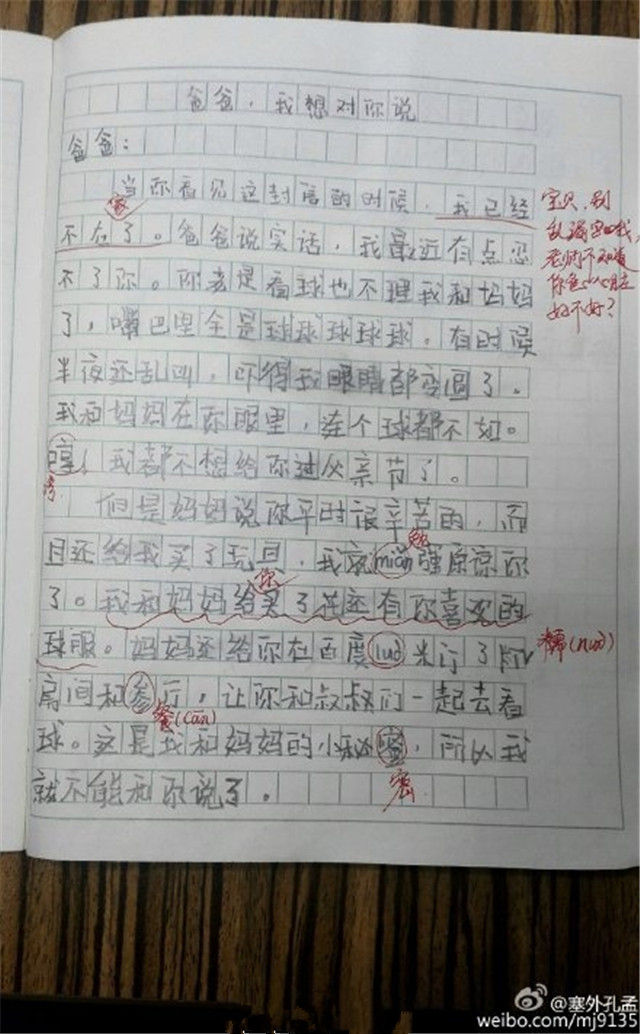 爸爸，我想对你说
爸爸：
当你看见这封信的时候，我已经
家
不在了。爸爸说实话，我最近有点忍
不了你。你老是看球也不理我和妈妈
了，嘴巴里全是球球球球球。有时候
半夜还乱叫，吓得我眼睛都变圆了。
我和妈妈在你眼里，连个球都不如。
哼！我都不想给你过父亲节了。
但是妈妈说你平时很辛苦的，而
勉
且还给我买了玩具，我就mian强原谅你
你
了。我和妈妈给买了花还有你喜欢的
球服。妈妈还给你在百度luo米订了
房间和参厅，让你和叔叔们一起去看
餐(cān)
球。这是我和妈妈的小秘蜜，所以我
就不能和你说了。
密
宝贝，别
乱强忍哦，
老师不知道
你
好不好？
糯(nuò)
@塞外孔孟
weibo.com/mj9135